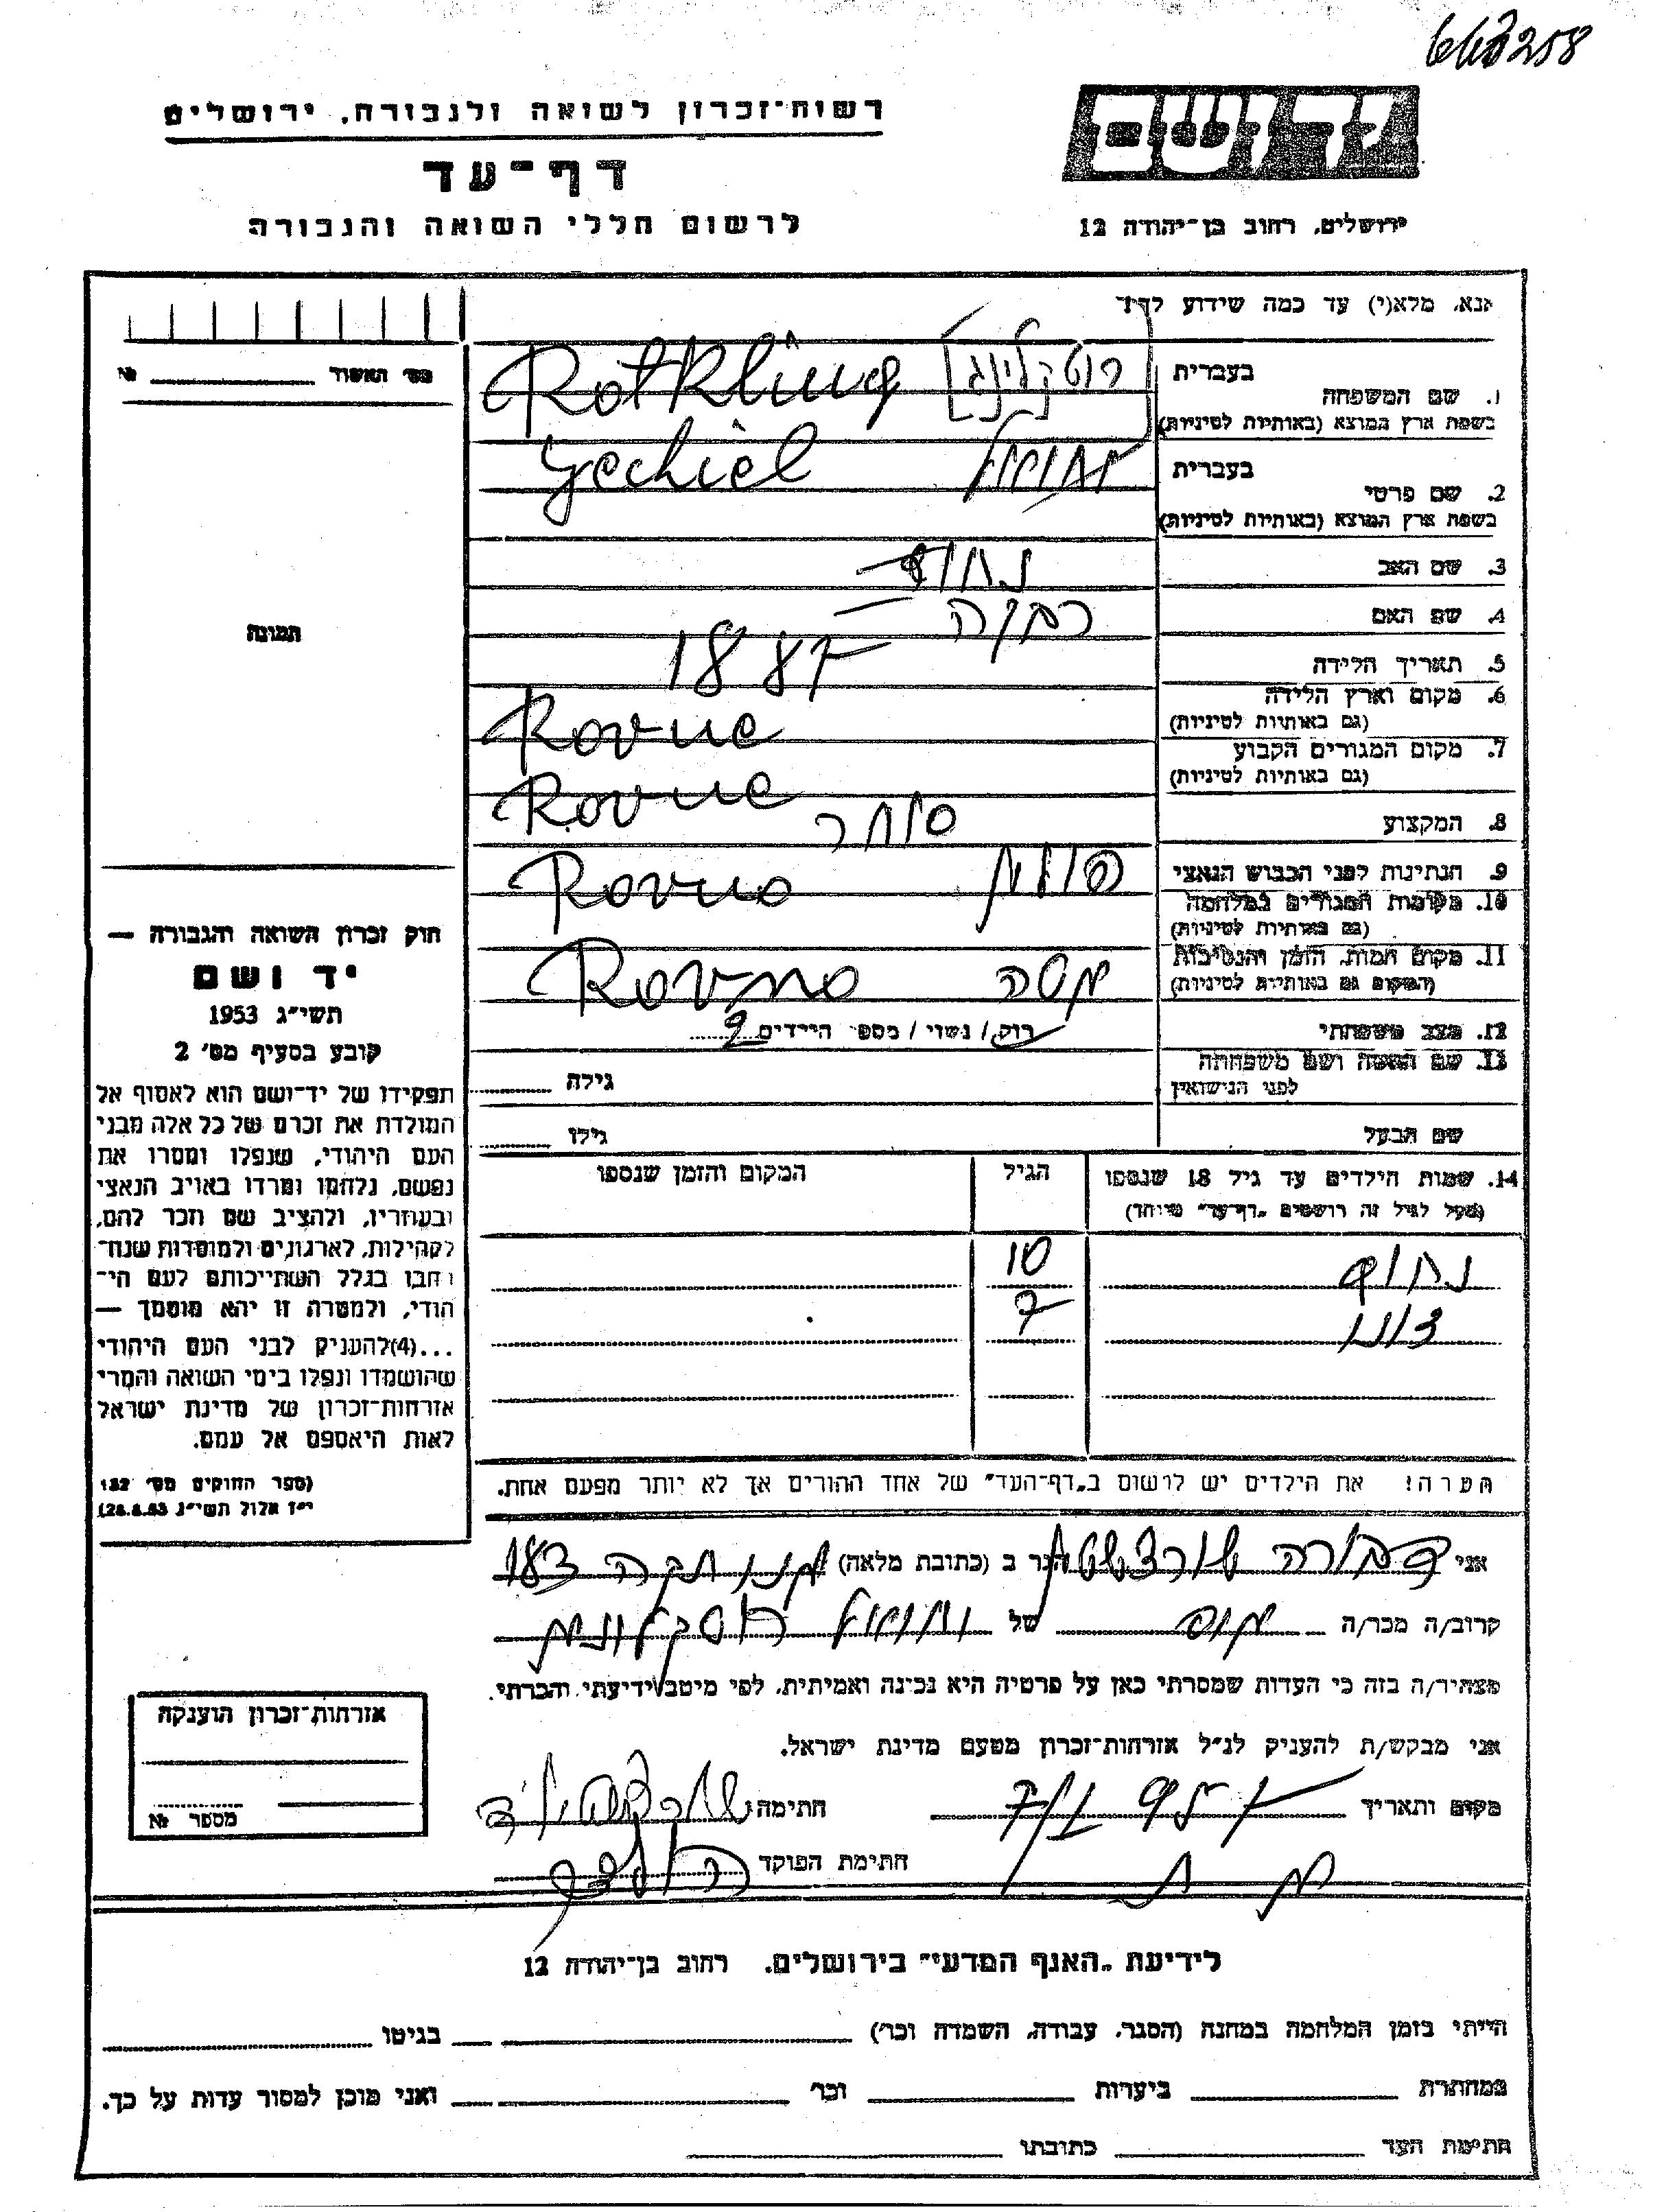 רשות־זכרון לשואה ולגבורה, ירושלים
דף־עד
לרשום חללי השואה והגבורה
יד ושם
ירושלים, רחוב בן־יהודה 12
אנא, מלא(י) עד כמה שידוע לך!
מס' האשור № 
תמונה
1. שם המשפחה
בעברית רוטקלינג
בשפת ארץ המוצא (באותיות לטיניות) Rotkling
2. שם פרטי
בעברית יחיאל
בשפת ארץ המוצא (באותיות לטיניות) Yechiel
3. שם האב נחום
4. שם האם רבקה
5. תאריך הלידה 1887
6. מקום וארץ הלידה
(גם באותיות לטיניות) Rovne
7. מקום המגורים הקבוע
(גם באותיות לטיניות) Rovne
8. המקצוע סוחר
9. הנתינות לפני הכבוש הנאצי פולנית
10. מקומות המגורים במלחמה
(גם באותיות לטיניות) Rovno
11. מקום המות, הזמן והנסיבות
(המקום גם באותיות לטיניות) Rovno
12. מצב משפחתי רוק / נשוי / מספר הילדים 2
13. שם האשה ושם משפחתה
לפני הנישואין גילה
שם הבעל גילו
14. שמות הילדים עד גיל 18 שנספו הגיל המקום והזמן שנספו
(מעל לגיל זה רושמים „דף־עד" מיוחד)
נחום 10
7
הערה! את הילדים יש לרשום ב„דף־העד" של אחד ההורים אך לא יותר מפעם אחת.
חוק זכרון השואה והגבורה —
יד ושם
תשי״ג 1953
קובע בסעיף מס׳ 2
תפקידו של יד־ושם הוא לאסוף אל
המולדת את זכרם של כל אלה מבני
העם היהודי, שנפלו ומסרו את
נפשם, נלחמו ומרדו באויב הנאצי
ובעוזריו, ולהציב שם וזכר להם,
לקהילות, לארגונים ולמוסדות שנח־
רבו בגלל השתייכותם לעם הי־
הודי, ולמטרה זו יהא מוסמך —
...(4)להעניק לבני העם היהודי
שהושמדו ונפלו בימי השואה והמרי
אזרחות־זכרון של מדינת ישראל
לאות היאספם אל עמם.
(ספר החוקים מס׳ 132
י״ז אלול תשי״ג 28.8.53)
אני דבורה הגר ב (כתובת מלאה)
קרוב/ה מכר/ה של יחיאל
מצהיר/ה בזה כי העדות שמסרתי כאן על פרטיה היא נכונה ואמיתית, לפי מיטב ידיעתי והכרתי.
אני מבקש/ת להעניק לנ״ל אזרחות־זכרון מטעם מדינת ישראל.
מקום ותאריך חתימה
חתימת הפוקד
אזרחות־זכרון הוענקה
מספר №
לידיעת „האגף המדעי" בירושלים, רחוב בן־יהודה 12
הייתי בזמן המלחמה במחנה (הסגר, עבודה, השמדה וכו׳) בגיטו
במחתרת ביערות וכו׳ ואני מוכן למסור עדות על כך.
חתימת העד כתובתו